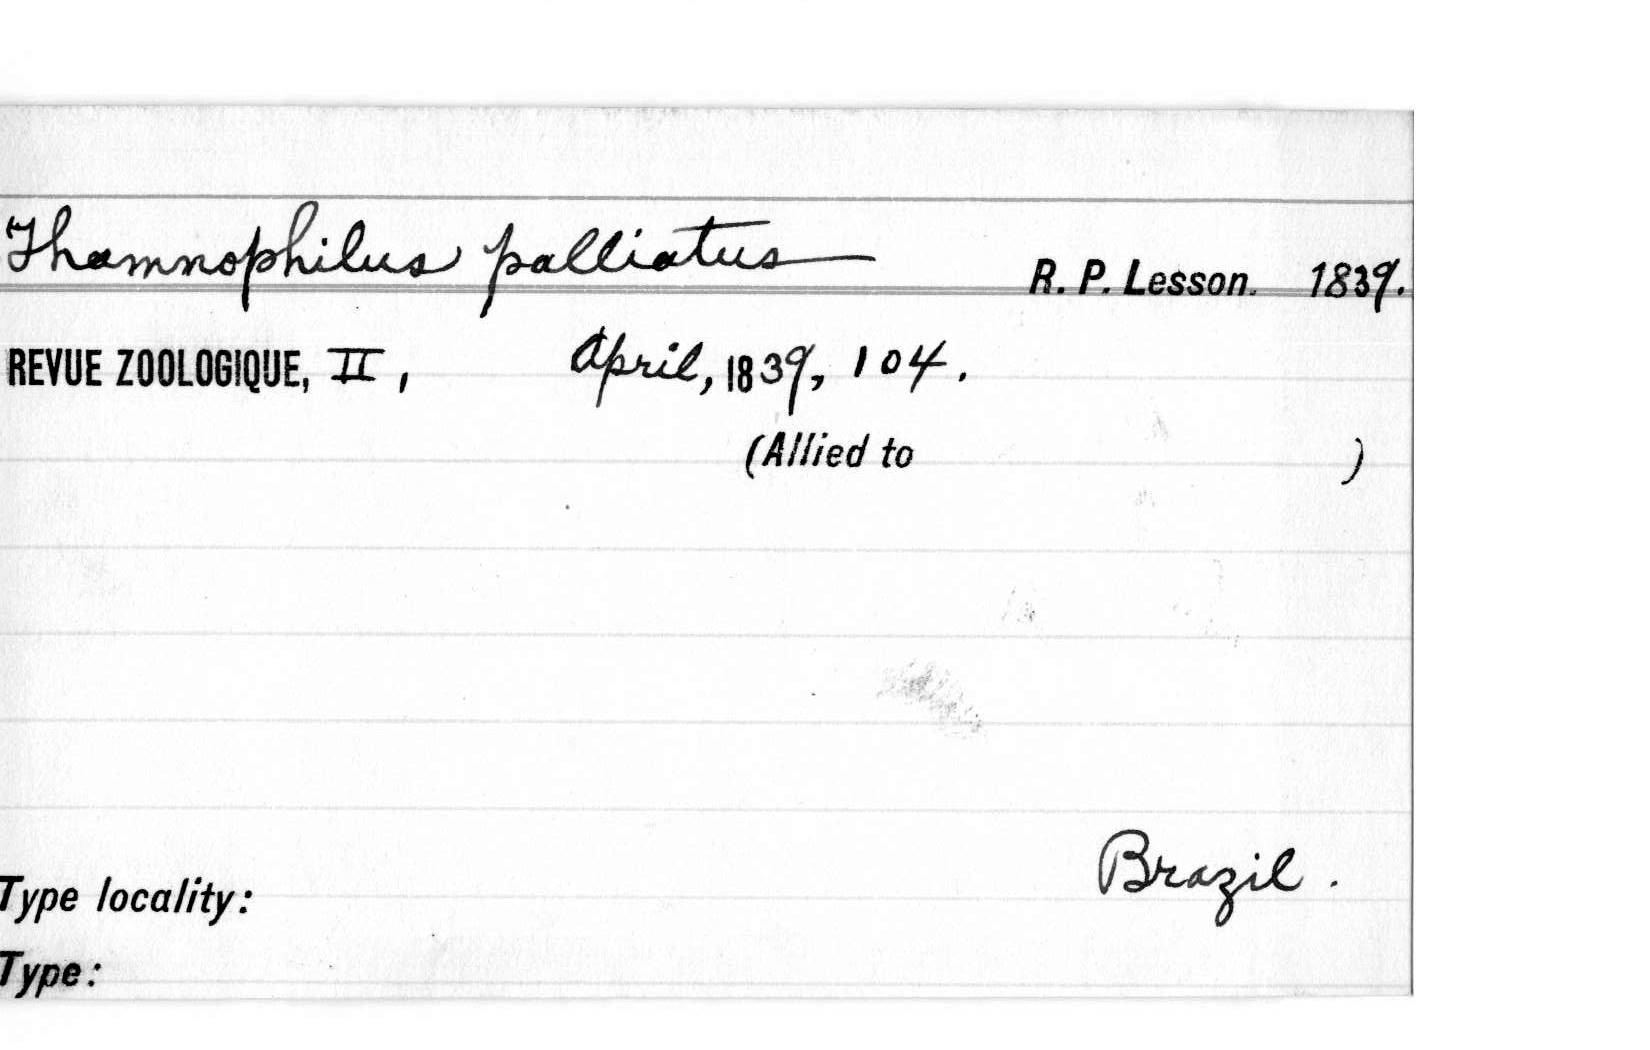 Thamnophilus palliatus R. P. Lesson. 1839.
REVUE ZOOLOGIQUE, II, April, 1839, 104.
(Allied to )
Brazil.
Type locality:
Type: